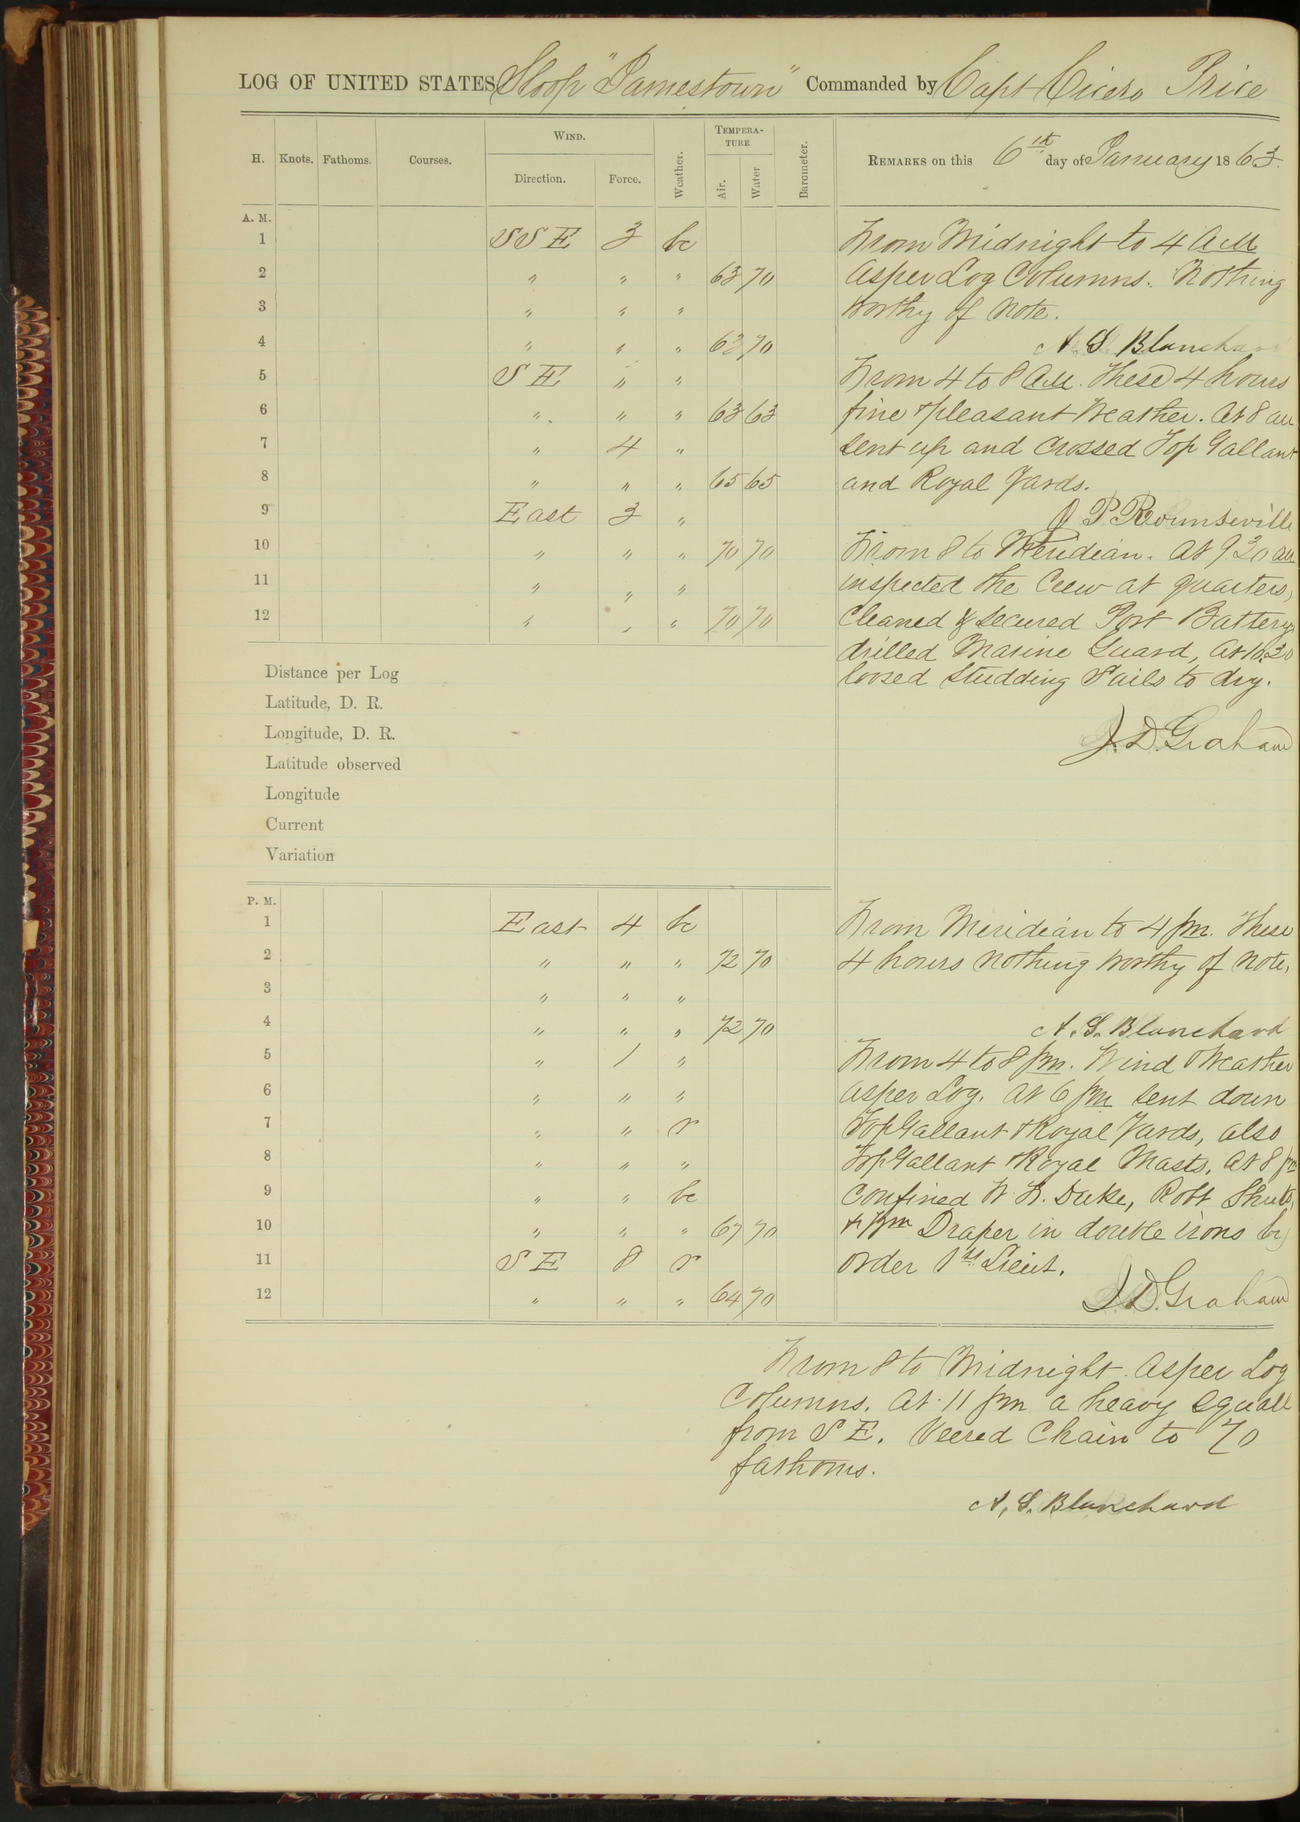 LOG OF UNITED STATES Sloop "Jamestown" Commanded by Capt Cicero Price
H. Knots. Fathoms. Courses. WIND. Direction. Force. Weather. TEMPERATURE Air. Water Barometer. REMARKS on this 6th day of January 1863.
A. M.
1 SSE 3 bc
2 " " " 63 70
3 " " "
4 " " " 63 70
5 SE " "
6 " " " 63 63
7 " 4 "
8 " " " 65 65
9 East 3 "
10 " " " 70 70
11 " " "
12 " " " 70 70
From Midnight to 4 AM
As per Log Columns. Nothing
worthy of note.
A. S. Blanchard
From 4 to 8 AM. These 4 hours
fine & pleasant weather. At 8 am
sent up and crossed Top Gallant
and Royal Yards.
J P Rounseville
From 8 to Meridian. At 9 30 am
inspected the Crew at quarters,
Cleaned & secured Port Battery,
drilled Marine Guard, At 10.30
loosed Studding Sails to dry.
J. D. Graham
Distance per Log
Latitude, D. R.
Longitude, D. R.
Latitude observed
Longitude
Current
Variation
P. M.
1 East 4 bc
2 " " " 72 70
3 " " "
4 " " " 72 70
5 " 1 "
6 " " "
7 " " r
8 " " "
9 " " bc
10 " " " 67 70
11 SE 8 r
12 " " " 64 70
From Meridian to 4 pm. These
4 hours nothing worthy of note.
A. S. Blanchard
From 4 to 8 pm. Wind & Weather
As per Log. At 6 pm sent down
Top Gallant & Royal Yards, also
Top Gallant & Royal Masts. At 8 pm
confined W. H. Duke, Robt
& Wm Draper in double irons by
order 1st Lieut.
J. D. Graham
From 8 to Midnight. As per Log
Columns. At 11 pm a heavy squall
from S E. Veered Chain to 70
fathoms.
A. S. Blanchard